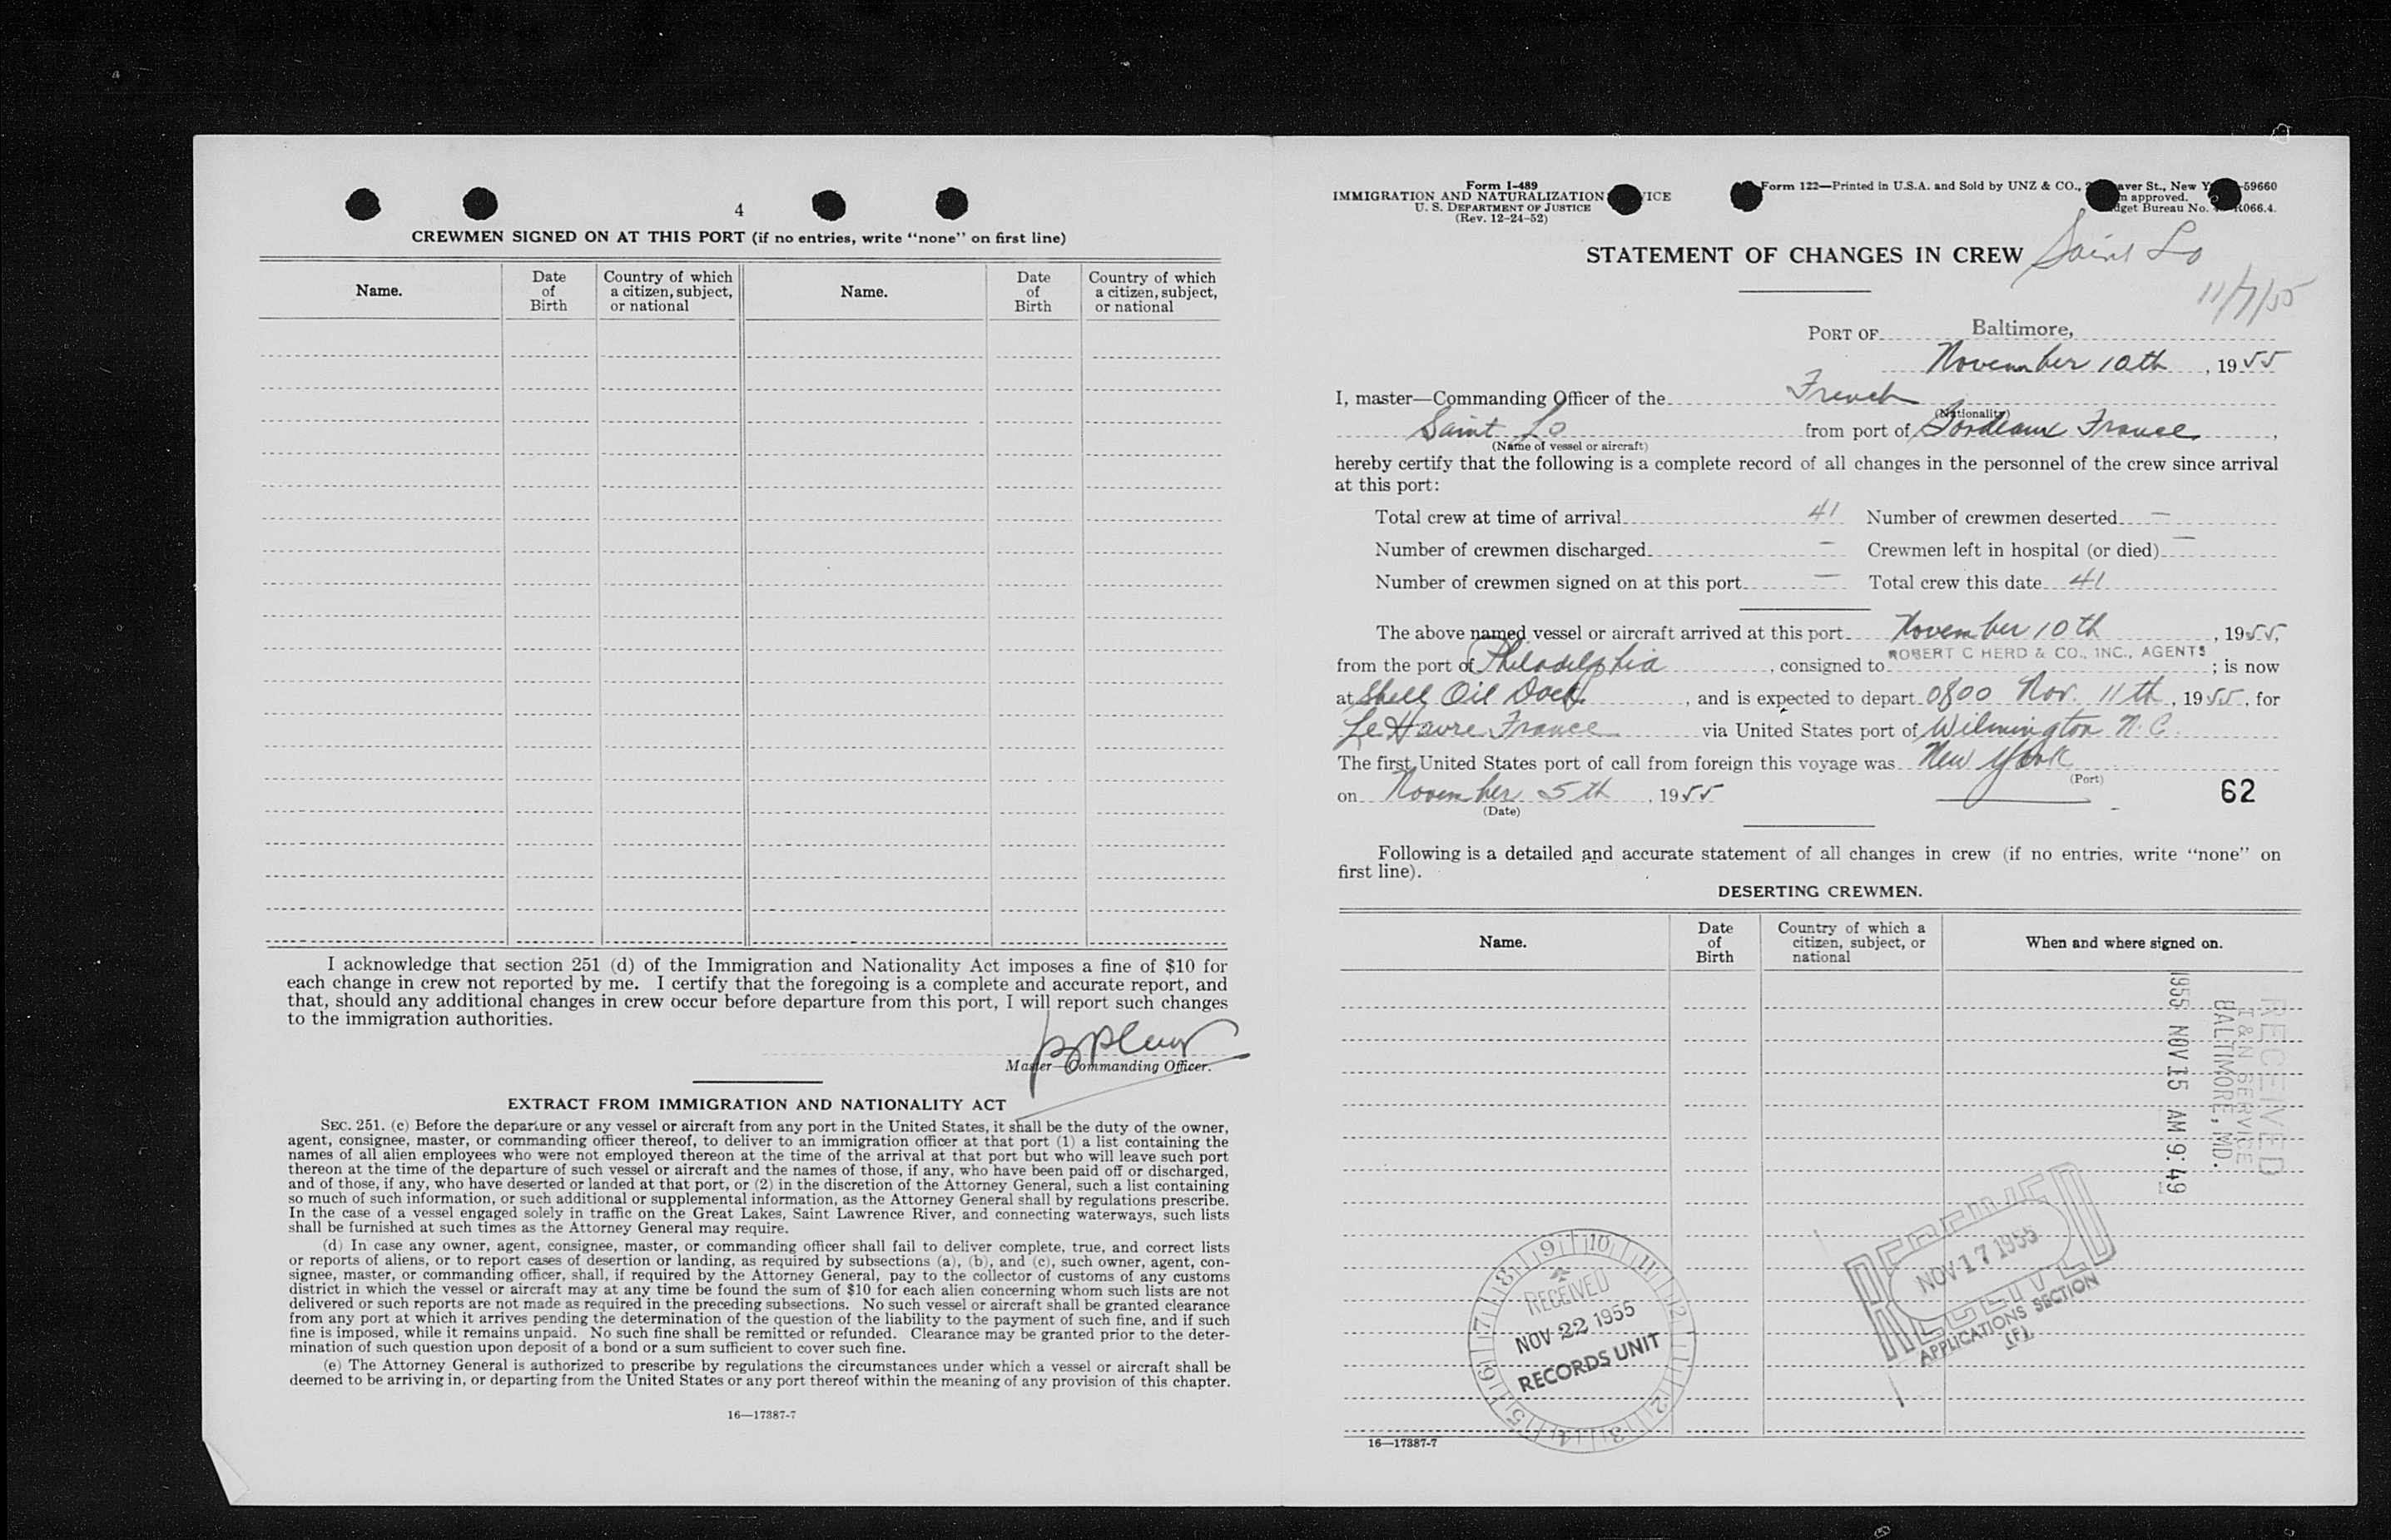 4
CREWMEN SIGNED ON AT THIS PORT (if no entries, write "none" on first line)
Name. Date of Birth Country of which a citizen, subject, or national Name. Date of Birth Country of which a citizen, subject, or national
I acknowledge that section 251 (d) of the Immigration and Nationality Act imposes a fine of $10 for
each change in crew not reported by me. I certify that the foregoing is a complete and accurate report, and
that, should any additional changes in crew occur before departure from this port, I will report such changes
to the immigration authorities.
Master—Commanding Officer.
EXTRACT FROM IMMIGRATION AND NATIONALITY ACT
SEC. 251. (c) Before the departure or any vessel or aircraft from any port in the United States, it shall be the duty of the owner,
agent, consignee, master, or commanding officer thereof, to deliver to an immigration officer at that port (1) a list containing the
names of all alien employees who were not employed thereon at the time of the arrival at that port but who will leave such port
thereon at the time of the departure of such vessel or aircraft and the names of those, if any, who have been paid off or discharged,
and of those, if any, who have deserted or landed at that port, or (2) in the discretion of the Attorney General, such a list containing
so much of such information, or such additional or supplemental information, as the Attorney General shall by regulations prescribe.
In the case of a vessel engaged solely in traffic on the Great Lakes, Saint Lawrence River, and connecting waterways, such lists
shall be furnished at such times as the Attorney General may require.
(d) In case any owner, agent, consignee, master, or commanding officer shall fail to deliver complete, true, and correct lists
or reports of aliens, or to report cases of desertion or landing, as required by subsections (a), (b), and (c), such owner, agent, con-
signee, master, or commanding officer, shall, if required by the Attorney General, pay to the collector of customs of any customs
district in which the vessel or aircraft may at any time be found the sum of $10 for each alien concerning whom such lists are not
delivered or such reports are not made as required in the preceding subsections. No such vessel or aircraft shall be granted clearance
from any port at which it arrives pending the determination of the question of the liability to the payment of such fine, and if such
fine is imposed, while it remains unpaid. No such fine shall be remitted or refunded. Clearance may be granted prior to the deter-
mination of such question upon deposit of a bond or a sum sufficient to cover such fine.
(e) The Attorney General is authorized to prescribe by regulations the circumstances under which a vessel or aircraft shall be
deemed to be arriving in, or departing from the United States or any port thereof within the meaning of any provision of this chapter.
16—17387-7
Form I-489
IMMIGRATION AND NATURALIZATION
U. S. DEPARTMENT OF JUSTICE
(Rev. 12-24-52)
Form 122—Printed in U.S.A. and Sold by UNZ & CO., New Y -59660
approved.
Bureau No. R066.4.
STATEMENT OF CHANGES IN CREW Saint Lo
11/7/55
PORT OF Baltimore,
November 10th, 1955
I, master—Commanding Officer of the French
(Nationality)
Saint Lo from port of Bordeaux France,
(Name of vessel or aircraft)
hereby certify that the following is a complete record of all changes in the personnel of the crew since arrival
at this port:
Total crew at time of arrival 41 Number of crewmen deserted —
Number of crewmen discharged — Crewmen left in hospital (or died) —
Number of crewmen signed on at this port — Total crew this date 41
The above named vessel or aircraft arrived at this port November 10th, 1955,
from the port of Philadelphia, consigned to ROBERT C HERD & CO., INC., AGENTS; is now
at Shell Oil Dock, and is expected to depart 0800 Nov. 11th, 1955, for
Le Havre France via United States port of Wilmington N.C.
The first United States port of call from foreign this voyage was New York
(Port)
on November 5th, 1955
(Date)
62
Following is a detailed and accurate statement of all changes in crew (if no entries, write "none" on
first line).
DESERTING CREWMEN.
Name. Date of Birth Country of which a citizen, subject, or national When and where signed on.
RECEIVED
I & N SERVICE
BALTIMORE, MD.
1955 NOV 15 AM 9:49
RECEIVED
NOV 17 1955
APPLICATIONS SECTION
(F)
RECEIVED
NOV 22 1955
RECORDS UNIT
16—17387-7